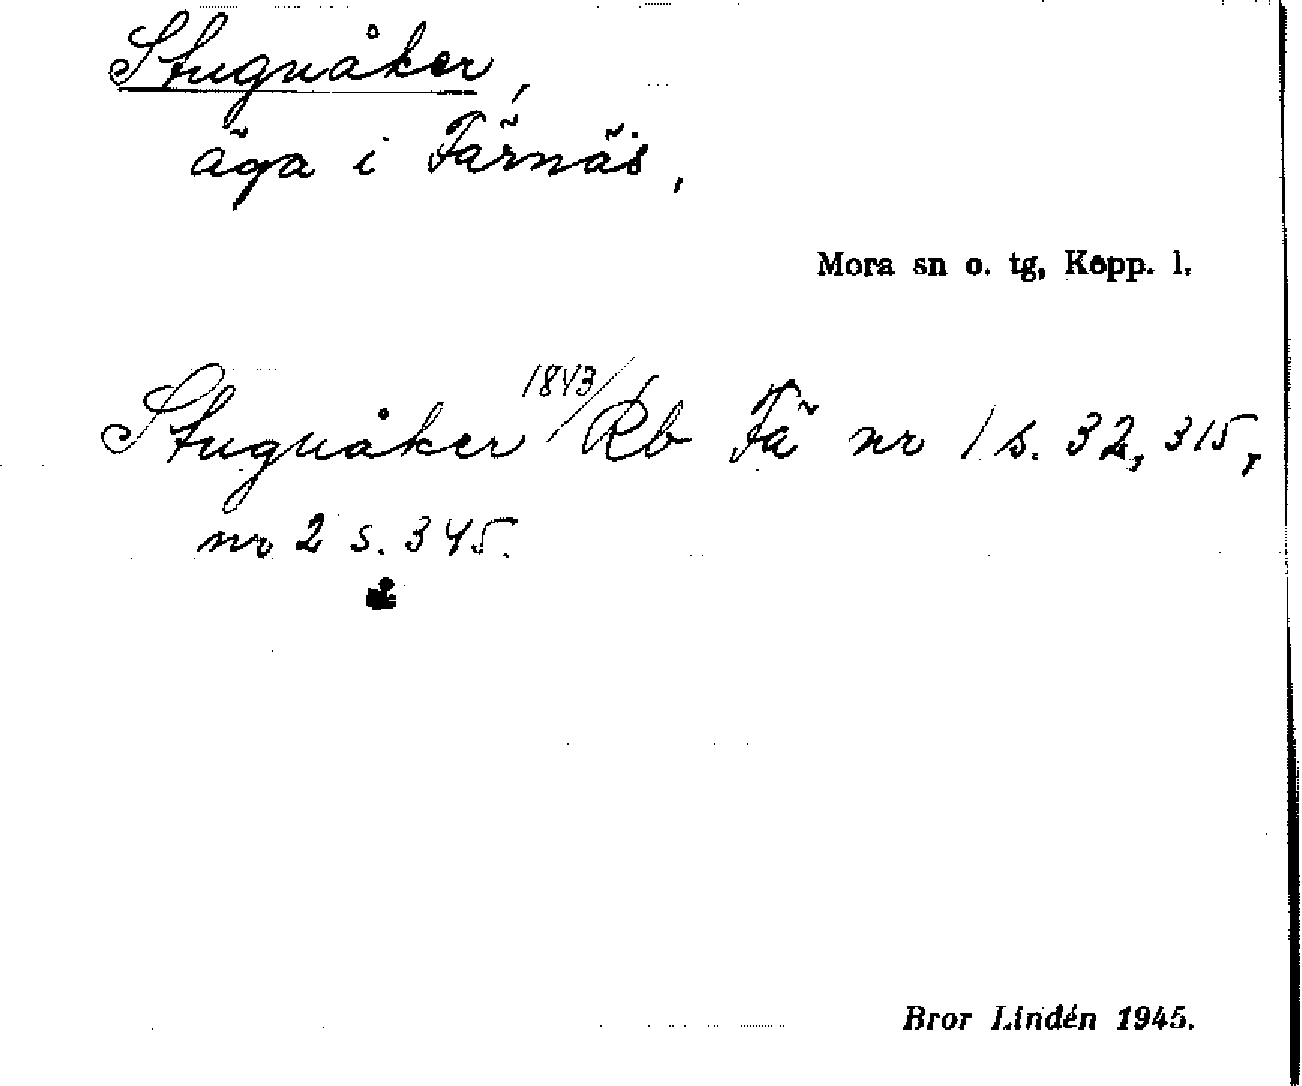 Stugnåker,
äga i Färnäs,
Mora sn o. tg, Kopp. l.
Stugnåker 1843/ Rb Fä nr 1 s. 32, 315,
nr 2 s. 345.
Bror Lindén 1945.